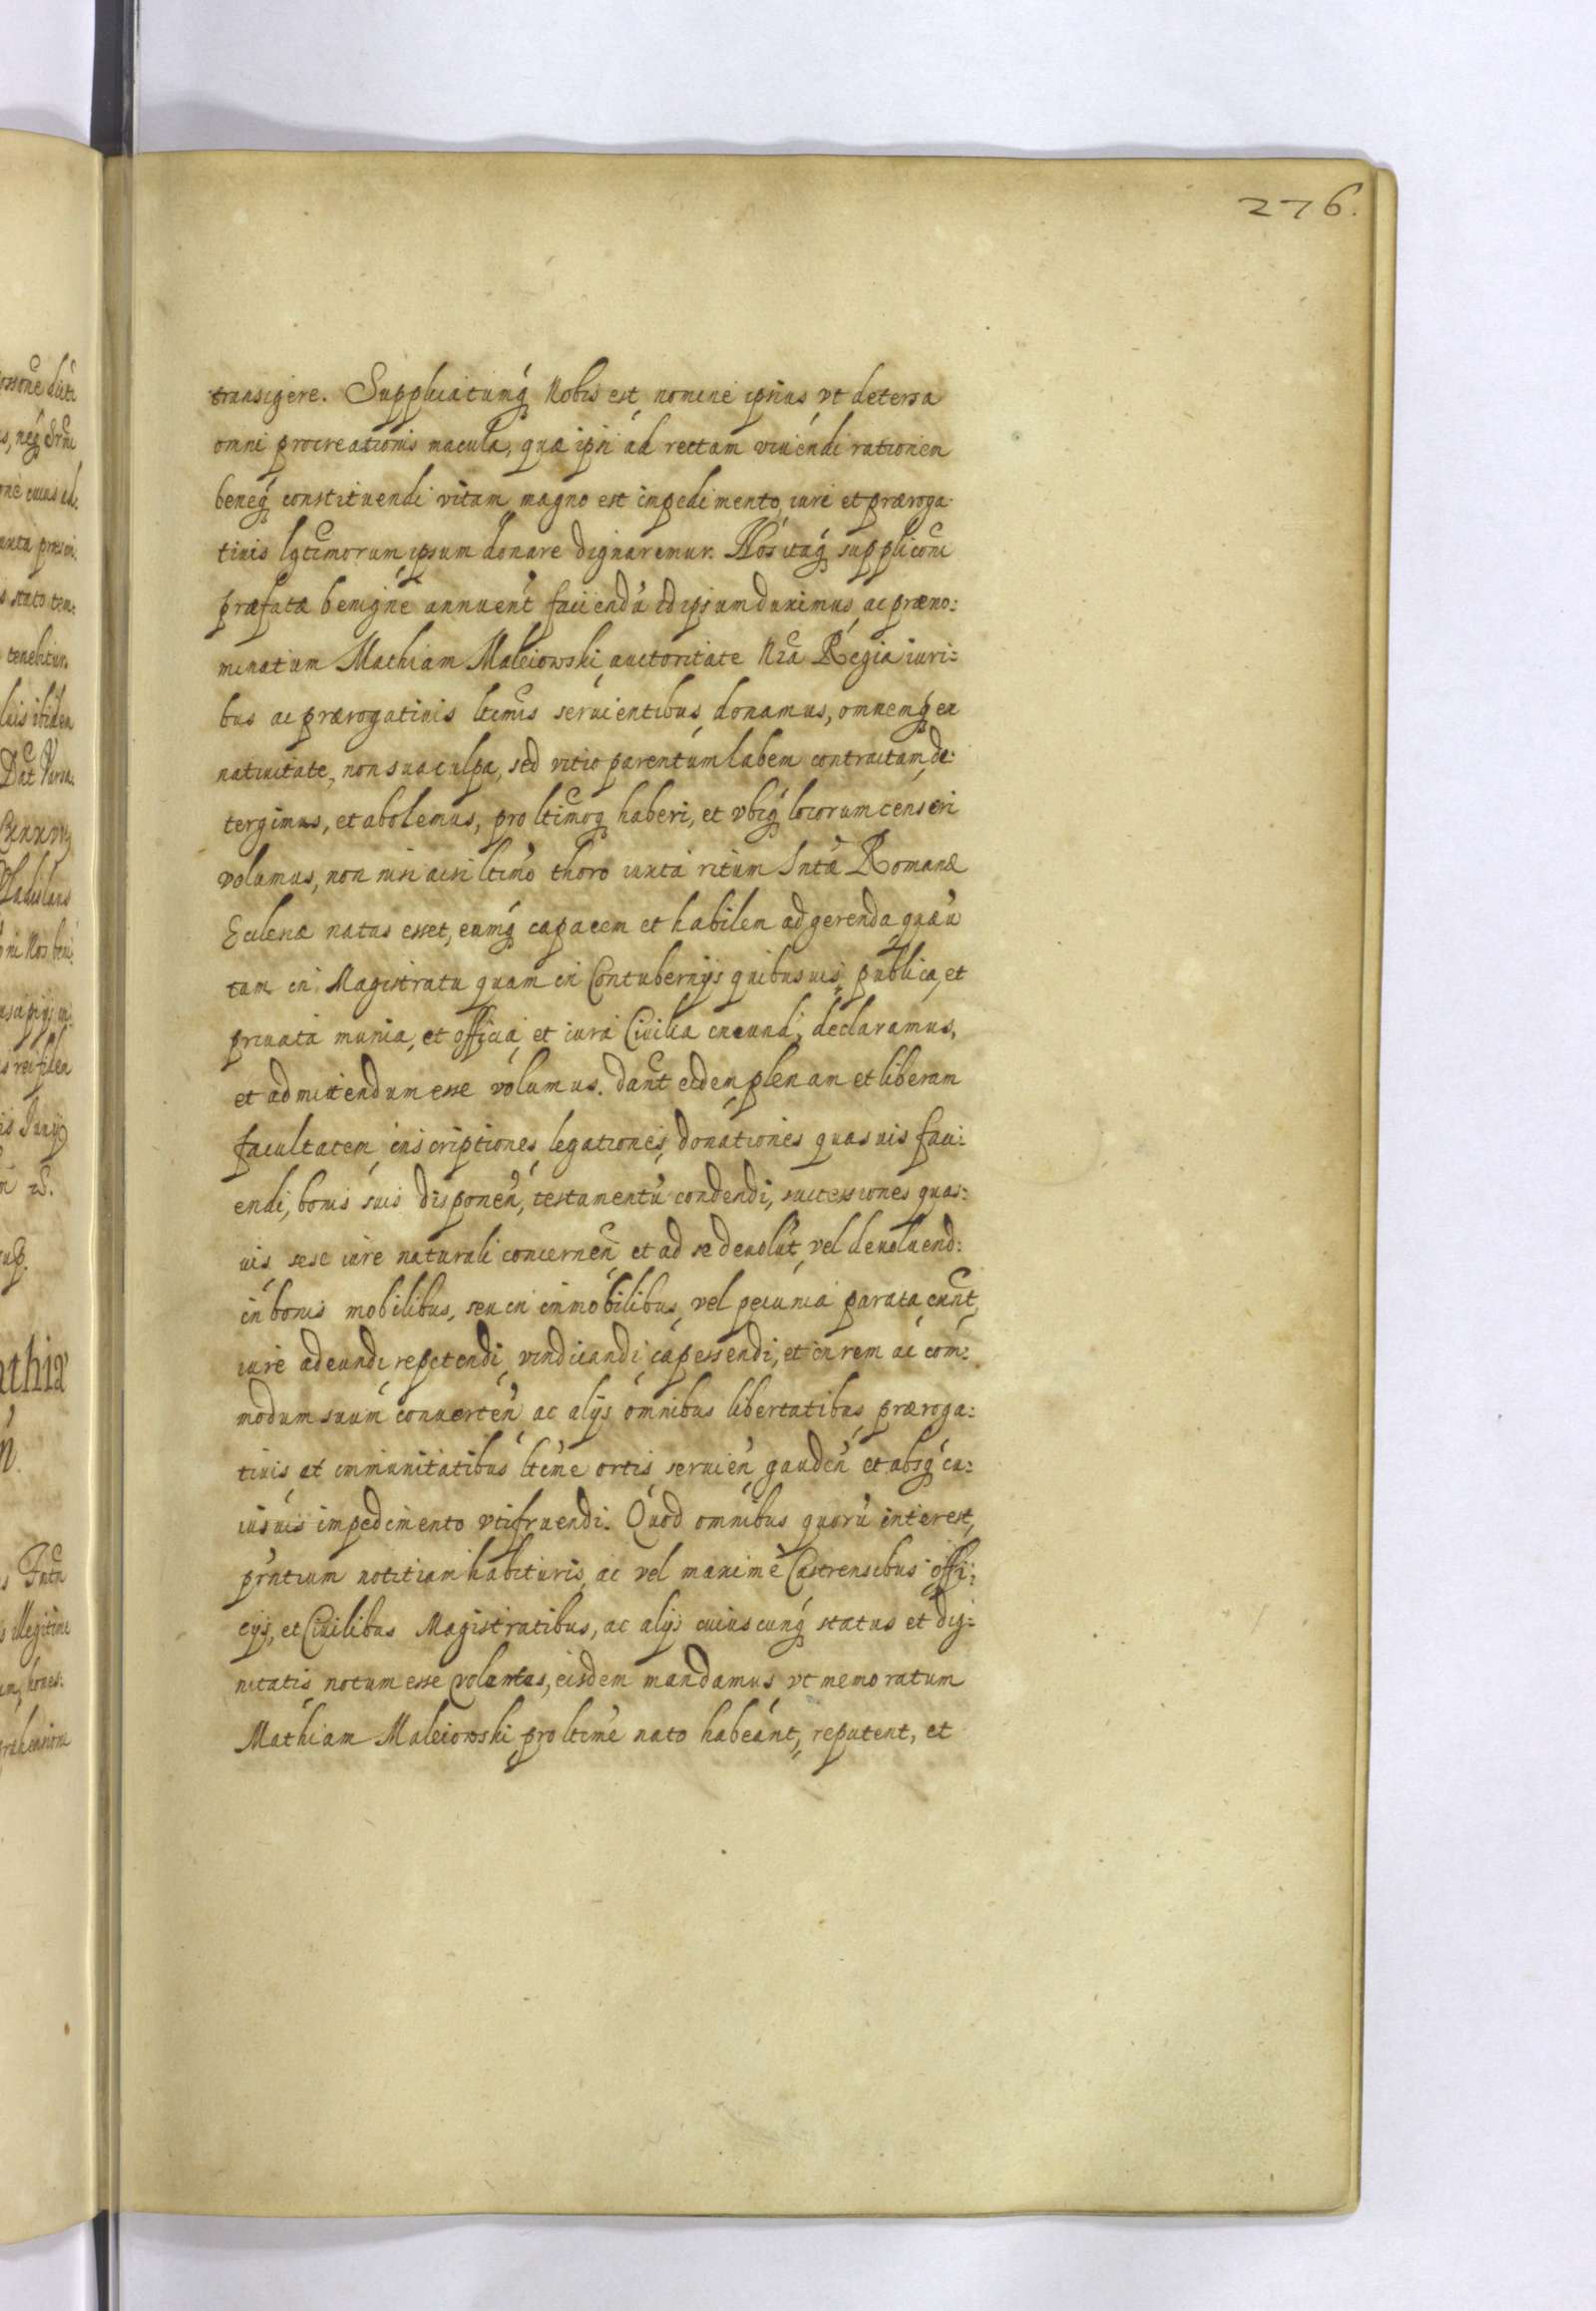 276.
transigere. Supplicatumq́ Nobis est nomine ipsius vt detersa
omni procreationis macula, quæ ipsi ad rectam viuendi rationem
beneq́ constituendi vitam magno est impedimento, iure et præroga
tiuis lgtimorum ipsum donare dignaremur. Nos itaq́ suppliconi
præfatæ benigne annuen̄t faciendū id ipsum duximus, ac præno:
minatum Mathiam Maleiowski, auctoritate Nrā Regia iuri:
bus ac prærogatiuis ltimis seruientibus donamus, omnemq́ ex
natiuitate, non sua culpa, sed vitio parentum labem contractam, de:
tergimus, et abolemus, pro ltimoq́ haberi, et vbiq́ locorum censeri
volumus, non nisi acsi ltimo thoro iuxta ritum Sntæ Romanæ
Ecclesiæ natus esset, eumq́ capacem et habilem ad gerenda quæū
tam in Magistratu quam in Contubernijs quibusuis, publica, et
priuata munia, et officia, et iura Ciuilia ineundi, declaramus,
et admittendum esse volumus. Dan̄t eidem plenam et liberam
facultatem inscriptiones, legationes, donationes quasuis faci:
endi, bonis suis disponen̄, testamentū condendi, successiones quas:
uis sese iure naturali concernen̄, et ad se deuolut, vel deuoluend:
in bonis mobilibus, seu in immobilibus, vel pecunia parata, eun̄t,
iure adeundi, repetendi, vindicandi, capessendi, et in rem ac com:
modum suum conuerten̄ ac alijs omnibus libertatibus, præroga:
tiuis et immunitatibus ltime ortis seruien̄ gauden̄ et absq́ cu:
iusuis impedimento vtifruendi. Quod omnibus quorū interest,
prntium notitiam habituris, ac vel maximè Castrensibus offi:
cijs, et Ciuilibus Magistratibus, ac alijs cuiuscunq́ status et dig:
nitatis notum esse volentes, eisdem mandamus vt memoratum
Mathiam Maleiowski pro ltime nato habeant, reputent, et